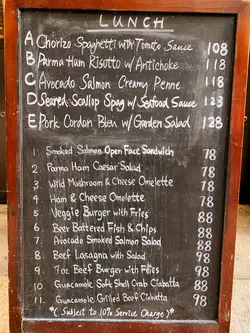 LUNCH
A Chorizo Spaghetti with Tomato Sauce 108
B Parma Ham Risotto w/ Antichoke 118
C Avocado Salmon Creamy Penne 118
D Seared Scallop Spag w/ Seafood Sauce 123
E Pork Cordon Bleu w/ Garden Salad 128
1. Smoked Salmon Open Face Sandwich 78
2. Parma Ham Caesar Salad 78
3. Wild Mushroom & Cheese Omelette 78
4. Ham & Cheese Omelette 78
5. Veggie Burger with Fries 88
6. Beer Battered Fish & Chips 88
7. Avocado Smoked Salmon Salad 88
8. Beef Lasagna with Salad 98
9. 7oz Beef Burger with Fries 98
10. Guacamole Soft Shell Crab Ciabatta 98
11. Guacamole Grilled Beef Ciabatta 98
*( Subject to 10% Service Charge )*